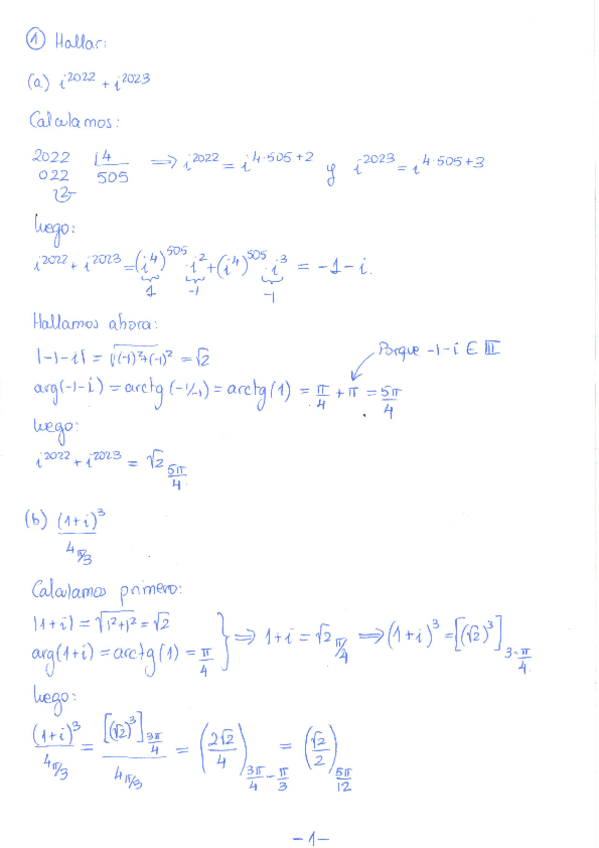 ① Hallar:
(a) i^2022 + i^2023
Calculamos:
2022 |4 ⟹ i^2022 = i^(4·505+2) y i^2023 = i^(4·505+3)
022 505
2
Luego:
i^2022 + i^2023 = (i^4)^505 · i^2 + (i^4)^505 · i^3 = -1-i.
1 -1 -i
Hallamos ahora:
|-1-i| = √((-1)²+(-1)²) = √2
Porque -1-i ∈ III
arg(-1-i) = arctg(-1/-1) = arctg(1) = π/4 + π = 5π/4
Luego:
i^2022 + i^2023 = √2_(5π/4)
(b) (1+i)^3 / 4_(π/3)
Calculamos primero:
|1+i| = √(1²+1²) = √2
arg(1+i) = arctg(1) = π/4 } ⟹ 1+i = √2_(π/4) ⟹ (1+i)^3 = [(√2)^3]_(3·π/4)
Luego:
(1+i)^3 / 4_(π/3) = [(√2)^3]_(3π/4) / 4_(π/3) = (2√2/4)_(3π/4 - π/3) = (√2/2)_(5π/12)
-1-